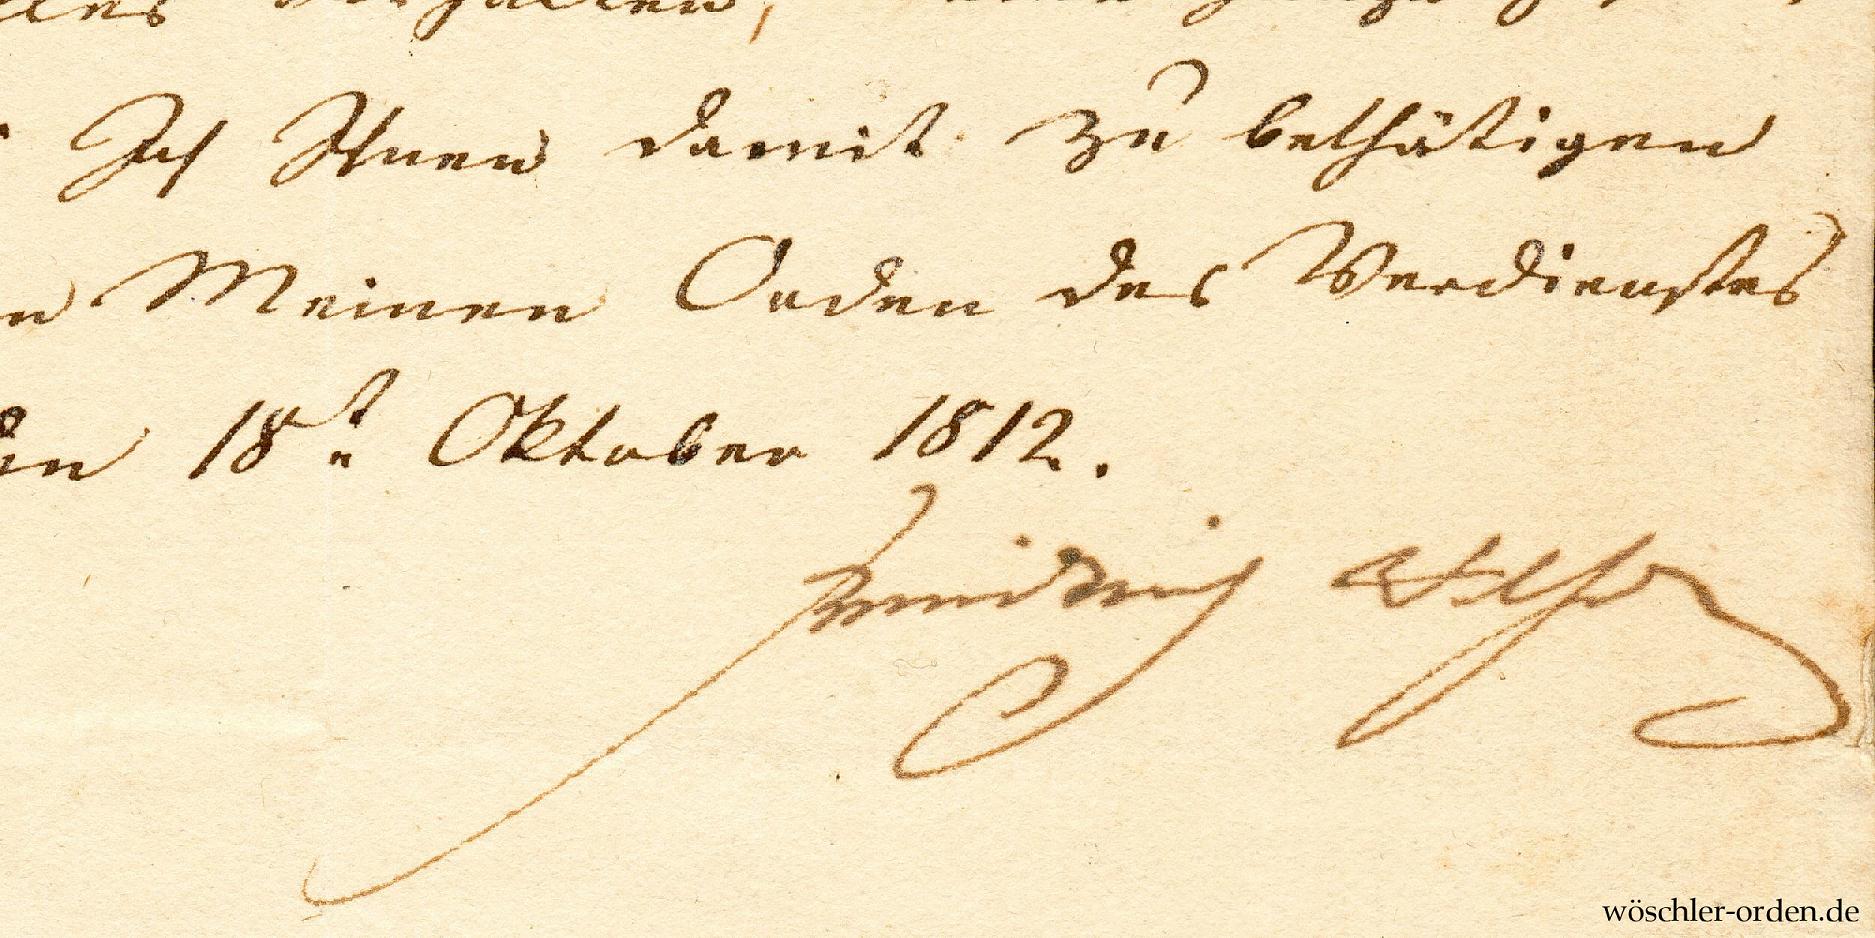 Ich Ihnen damit zu bethätigen
n Meinen Orden des Verdienstes
en 18t. Oktober 1812.
Friedrich Wilhelm
wöschler-orden.de